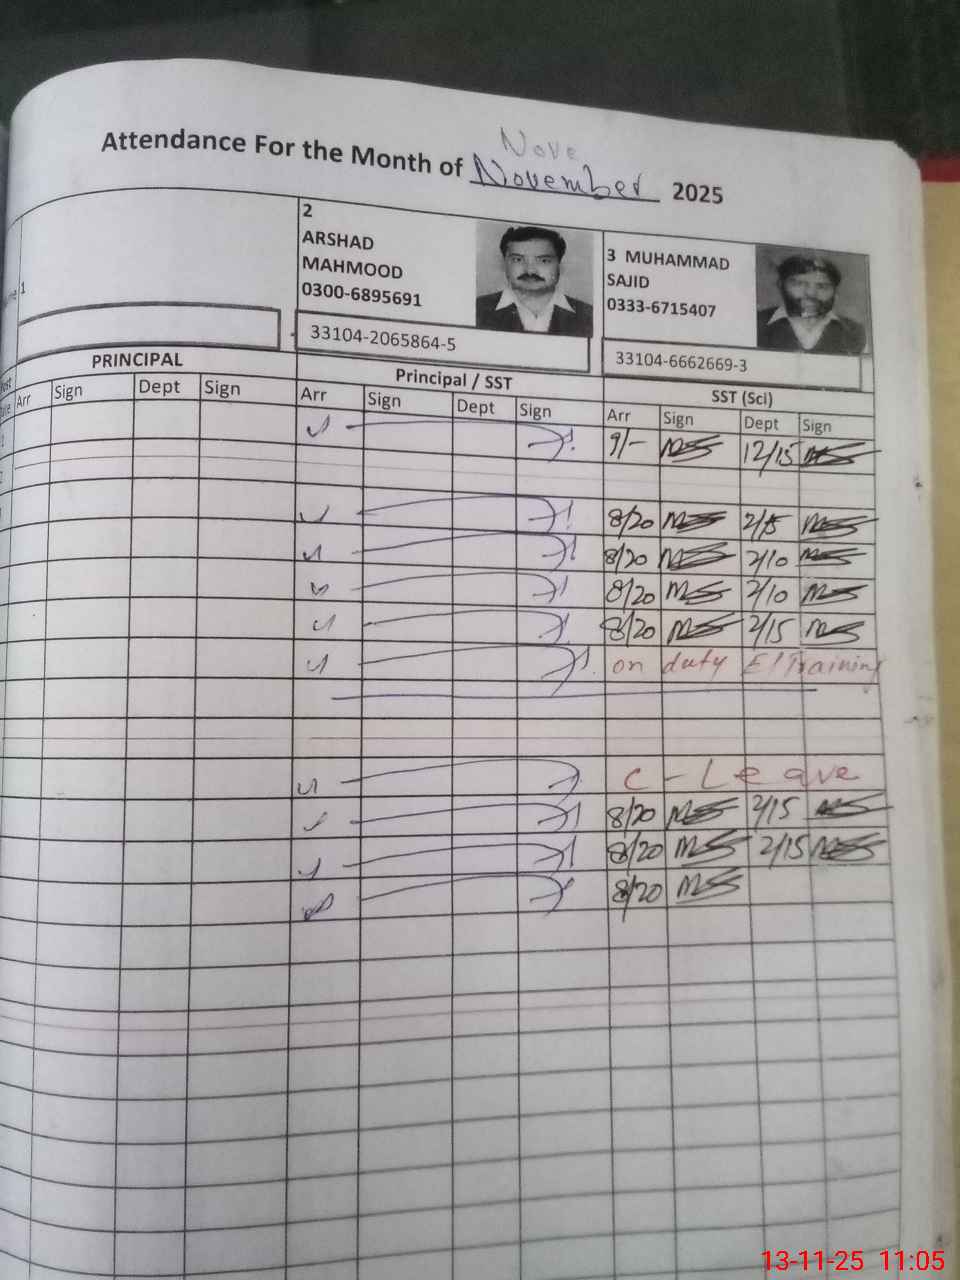 Nove
Attendance For the Month of November 2025
1
2
ARSHAD
MAHMOOD
0300-6895691
33104-2065864-5
3 MUHAMMAD
SAJID
0333-6715407
33104-6662669-3
PRINCIPAL
Principal / SST
SST (Sci)
Arr Sign Dept Sign Arr Sign Dept Sign Arr Sign Dept Sign
9/- 12/15
8/20 2/15
8/20 2/10
8/20 2/10
8/20 2/15
on duty E/Training
C - Leave
8/20 2/15
8/20 2/15
8/20
13-11-25 11:05